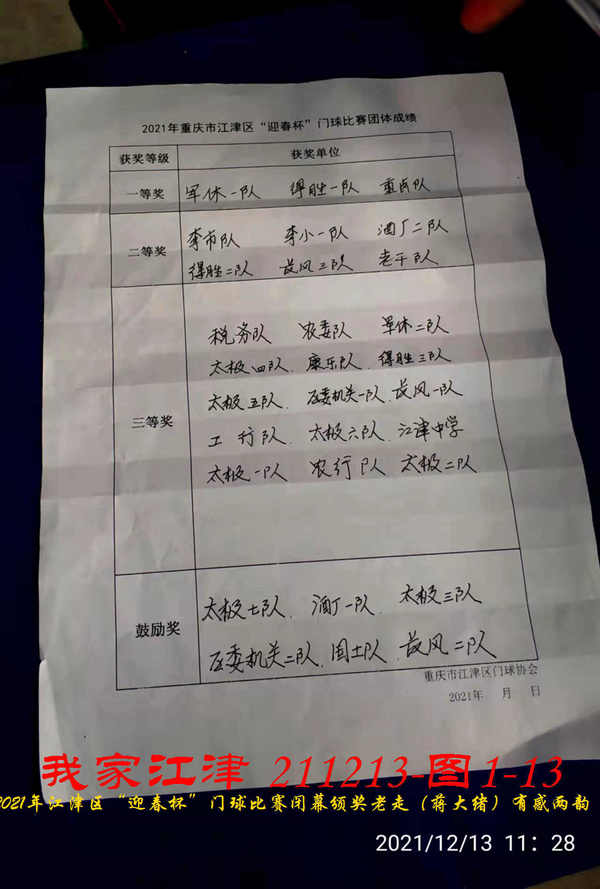 2021年重庆市江津区“迎春杯”门球比赛团体成绩
获奖等级 获奖单位
一等奖 军休一队 得胜一队 重齿队
二等奖 李市队 李小一队 酒厂二队
得胜二队 晨风三队 老干队
三等奖 税务队 农委队 军休二队
太极四队、康乐队、得胜三队
太极五队、区委机关一队、晨风一队
工行队 太极六队、江津中学
太极一队 农行队 太极二队
鼓励奖 太极七队、酒厂一队、太极三队
区委机关二队、国土队、晨风二队
重庆市江津区门球协会
2021年 月 日
我家江津 211213-图1-13
2021年江津区“迎春杯”门球比赛闭幕颁奖老走（蒋大绪）有感两韵
2021/12/13 11：28